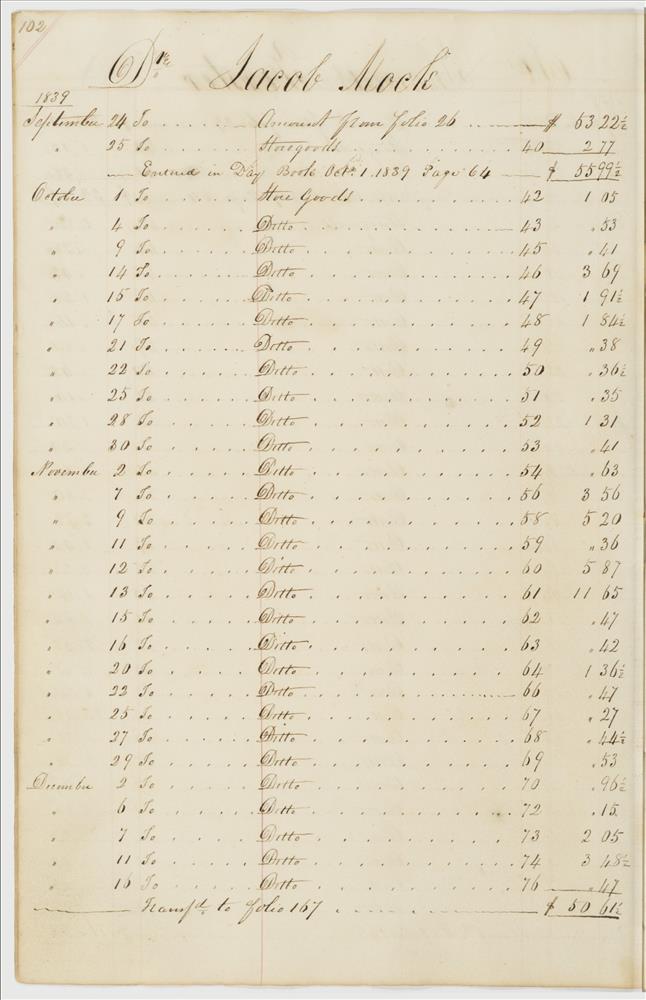 102
Dr. Jacob Mock
1839
September 24 To . . . . . . Amount from folio 26 $ 53 22½
" 25 To . . . . . . Storegoods . . . . . . 40 2 77
Entered in Day Book Oct. 1. 1839 Page 64 $ 55 99½
October 1 To . . . . . . Store Goods . . . . . . 42 1 05
" 4 To . . . . . . Ditto . . . . . . 43 " 53
" 9 To . . . . . . Ditto . . . . . . 45 " 41
" 14 To . . . . . . Ditto . . . . . . 46 3 69
" 15 To . . . . . . Ditto . . . . . . 47 1 91½
" 17 To . . . . . . Ditto . . . . . . 48 1 84½
" 21 To . . . . . . Ditto . . . . . . 49 " 38
" 22 To . . . . . . Ditto . . . . . . 50 " 36½
" 25 To . . . . . . Ditto . . . . . . 51 " 35
" 28 To . . . . . . Ditto . . . . . . 52 1 31
" 30 To . . . . . . Ditto . . . . . . 53 " 41
November 2 To . . . . . . Ditto . . . . . . 54 " 63
" 7 To . . . . . . Ditto . . . . . . 56 3 56
" 9 To . . . . . . Ditto . . . . . . 58 5 20
" 11 To . . . . . . Ditto . . . . . . 59 " 36
" 12 To . . . . . . Ditto . . . . . . 60 5 87
" 13 To . . . . . . Ditto . . . . . . 61 11 65
" 15 To . . . . . . Ditto . . . . . . 62 " 47
" 16 To . . . . . . Ditto . . . . . . 63 " 42
" 20 To . . . . . . Ditto . . . . . . 64 1 36½
" 22 To . . . . . . Ditto . . . . . . 66 " 47
" 25 To . . . . . . Ditto . . . . . . 67 " 27
" 27 To . . . . . . Ditto . . . . . . 68 " 44½
" 29 To . . . . . . Ditto . . . . . . 69 " 53
December 2 To . . . . . . Ditto . . . . . . 70 " 96½
" 6 To . . . . . . Ditto . . . . . . 72 " 15
" 7 To . . . . . . Ditto . . . . . . 73 2 05
" 11 To . . . . . . Ditto . . . . . . 74 3 48½
" 16 To . . . . . . Ditto . . . . . . 76 " 47
Transfd. to folio 167 . . . . . . $ 50 61½